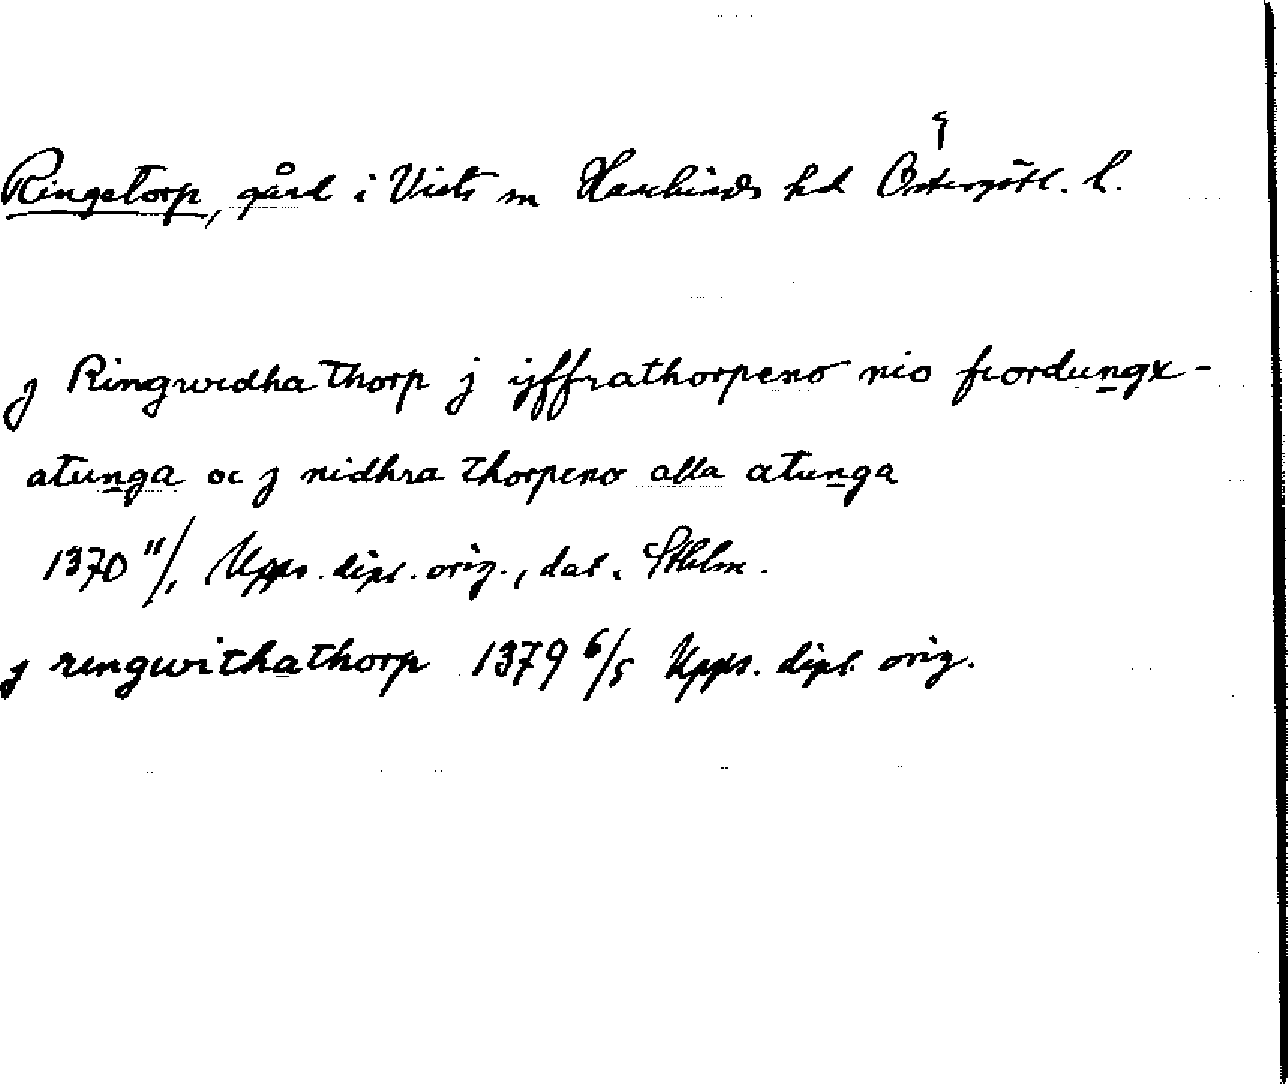 Ringetorp, gård i Viets sn Hanekinds hd Östergötl. l.
j Ringwidha thorp j yffrathorpeno nio fiordungx-
atunga oc j nidhra thorpeno alla atunga
1370 11/1 Upps. dipl. orig., dat. Sthlm.
j ringwithathorp 1379 6/5 Upps. dipl. orig.